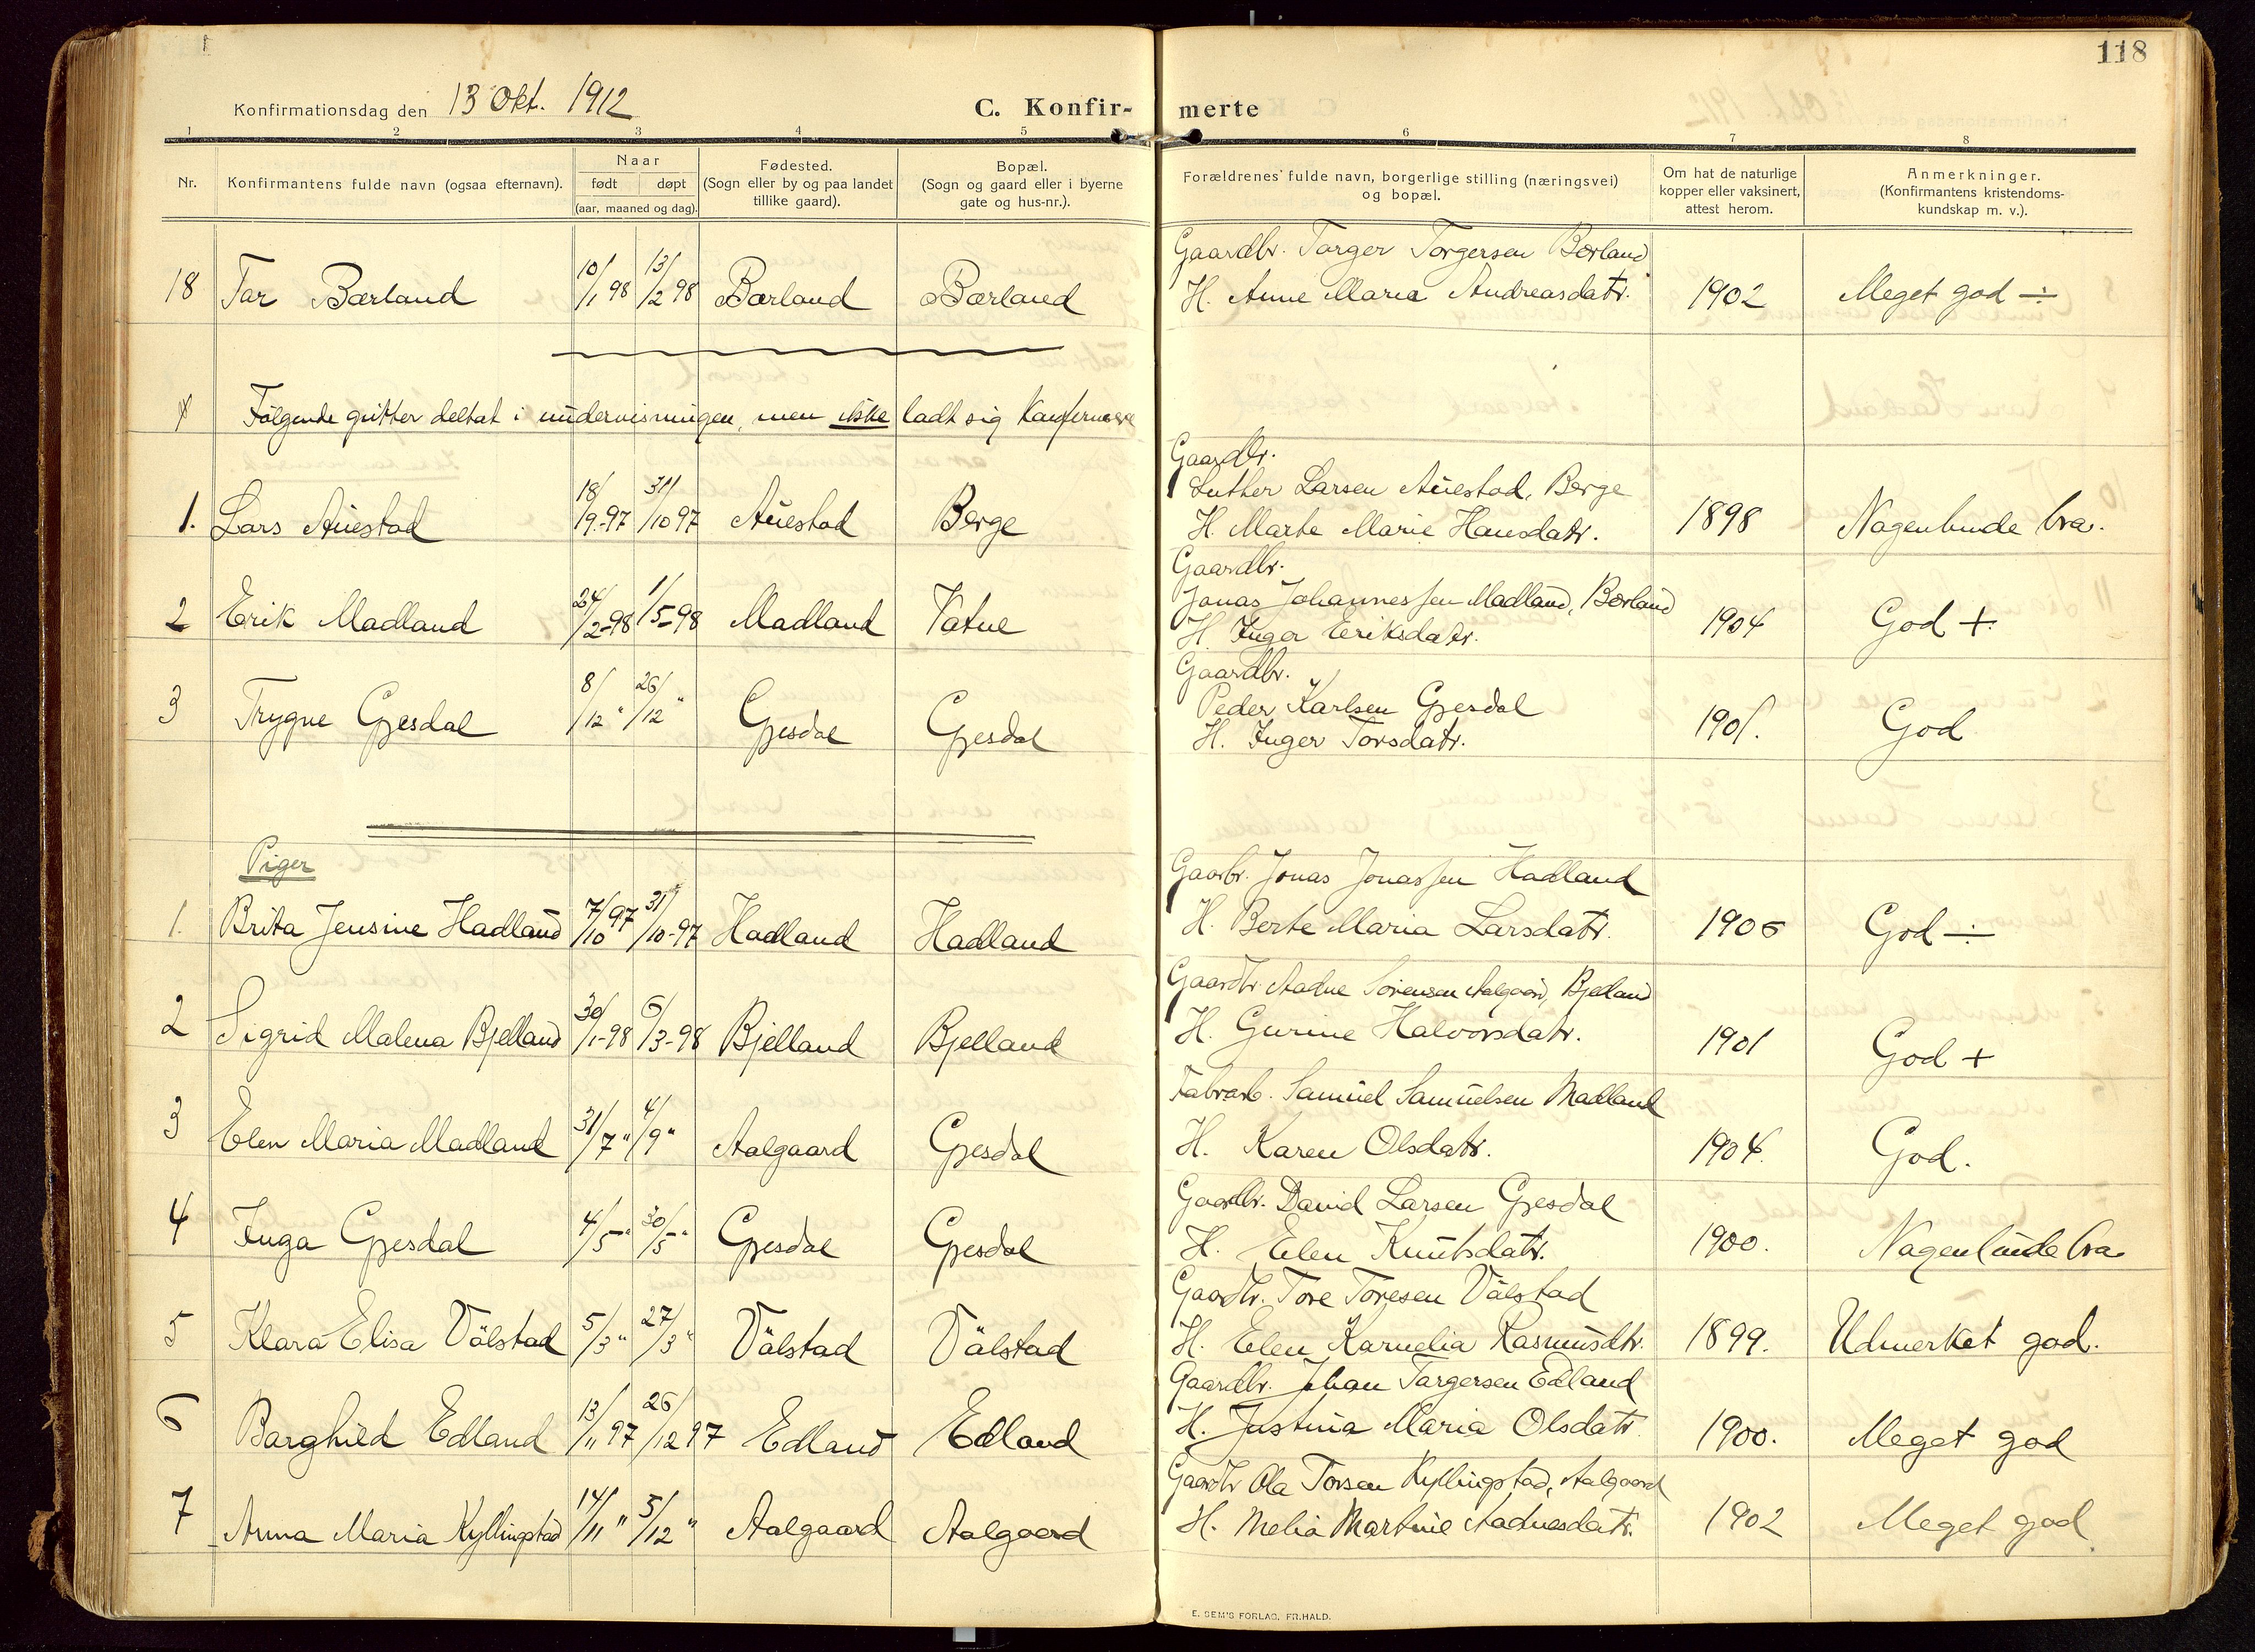 118
Konfirmationsdag den 13 Okt. 1912
C. Konfir- merte
1 2 3 4 5 6 7 8
Nr.
Konfirmantens fulde navn (ogsaa efternavn).
Naar
født døpt
(aar, maaned og dag).
Fødested.
(Sogn eller by og paa landet
tillike gaard).
Bopæl.
(Sogn og gaard eller i byerne
gate og hus-nr.).
Forældrenes fulde navn, borgerlige stilling (næringsvei)
og bopæl.
Om hat de naturlige
kopper eller vaksinert,
attest herom.
Anmerkninger.
(Konfirmantens kristendoms-
kundskap m. v.).
Gaardbr. Torger Torgersen Bærland
18 Tor Bærland 10/1 98 13/2 98 Bærland Bærland H. Anne Maria Andreasdatr. 1902 Meget god ÷
Følgende gutter deltat i undervisningen, men ikke ladt sig Konfirmere
Gaardbr.
Luther Larsen Auestad, Berge
1. Lars Auestad 18/9-97 31/10 97 Auestad Berge H. Marte Marie Hansdatr. 1898 Nogenlunde bra.
Gaardbr.
Jonas Johannessen Madland, Bærland
2 Erik Madland 24/2-98 1/5-98 Madland Vatne H. Inger Eriksdatr. 1904 God +
Gaardbr.
Peder Karlsen Gjesdal
3 Trygve Gjesdal 8/12 " 26/12 " Gjesdal Gjesdal H. Inger Torsdatr. 1901. God
Piger
Gaarbr. Jonas Jonassen Hadland
1. Brita Jensine Hadland 7/10 97 31/10-97 Hadland Hadland H. Berte Maria Larsdatr. 1906 God ÷
Gaardbr Aadne Sørensen Aalgaard, Bjelland
2 Sigrid Malena Bjelland 30/1-98 6/3-98 Bjelland Bjelland H. Gurine Halvorsdatr. 1901 God +
Fabrarb. Samuel Samuelsen Madland
3 Elen Maria Madland 31/7 " 4/9 " Aalgaard Gjesdal H. Karen Olsdatr. 1904. God.
Gaardbr. David Larsen Gjesdal
4 Inga Gjesdal 4/5 " 30/5 " Gjesdal Gjesdal H. Elen Knutsdatr. 1900. Nogenlunde bra
Gaardbr. Tore Toresen Vølstad
5 Klara Elisa Vølstad 5/3 " 27/3 " Vølstad Vølstad H. Elen Karnelia Rasmusdtr. 1899. Udmerket god.
Gaardbr. Johan Torgersen Edland
6 Borghild Edland 13/11 97 26/12 97 Edland Edland H. Justina Maria Olsdatr. 1900. Meget god
Gaardbr Ola Torsen Kyllingstad, Aalgaard
7 Anna Maria Kyllingstad 14/11 " 5/12 " Aalgaard Aalgaard H. Melia Martine Aadnesdatr. 1902 Meget god
E. SEM'S FORLAG, FR.HALD.